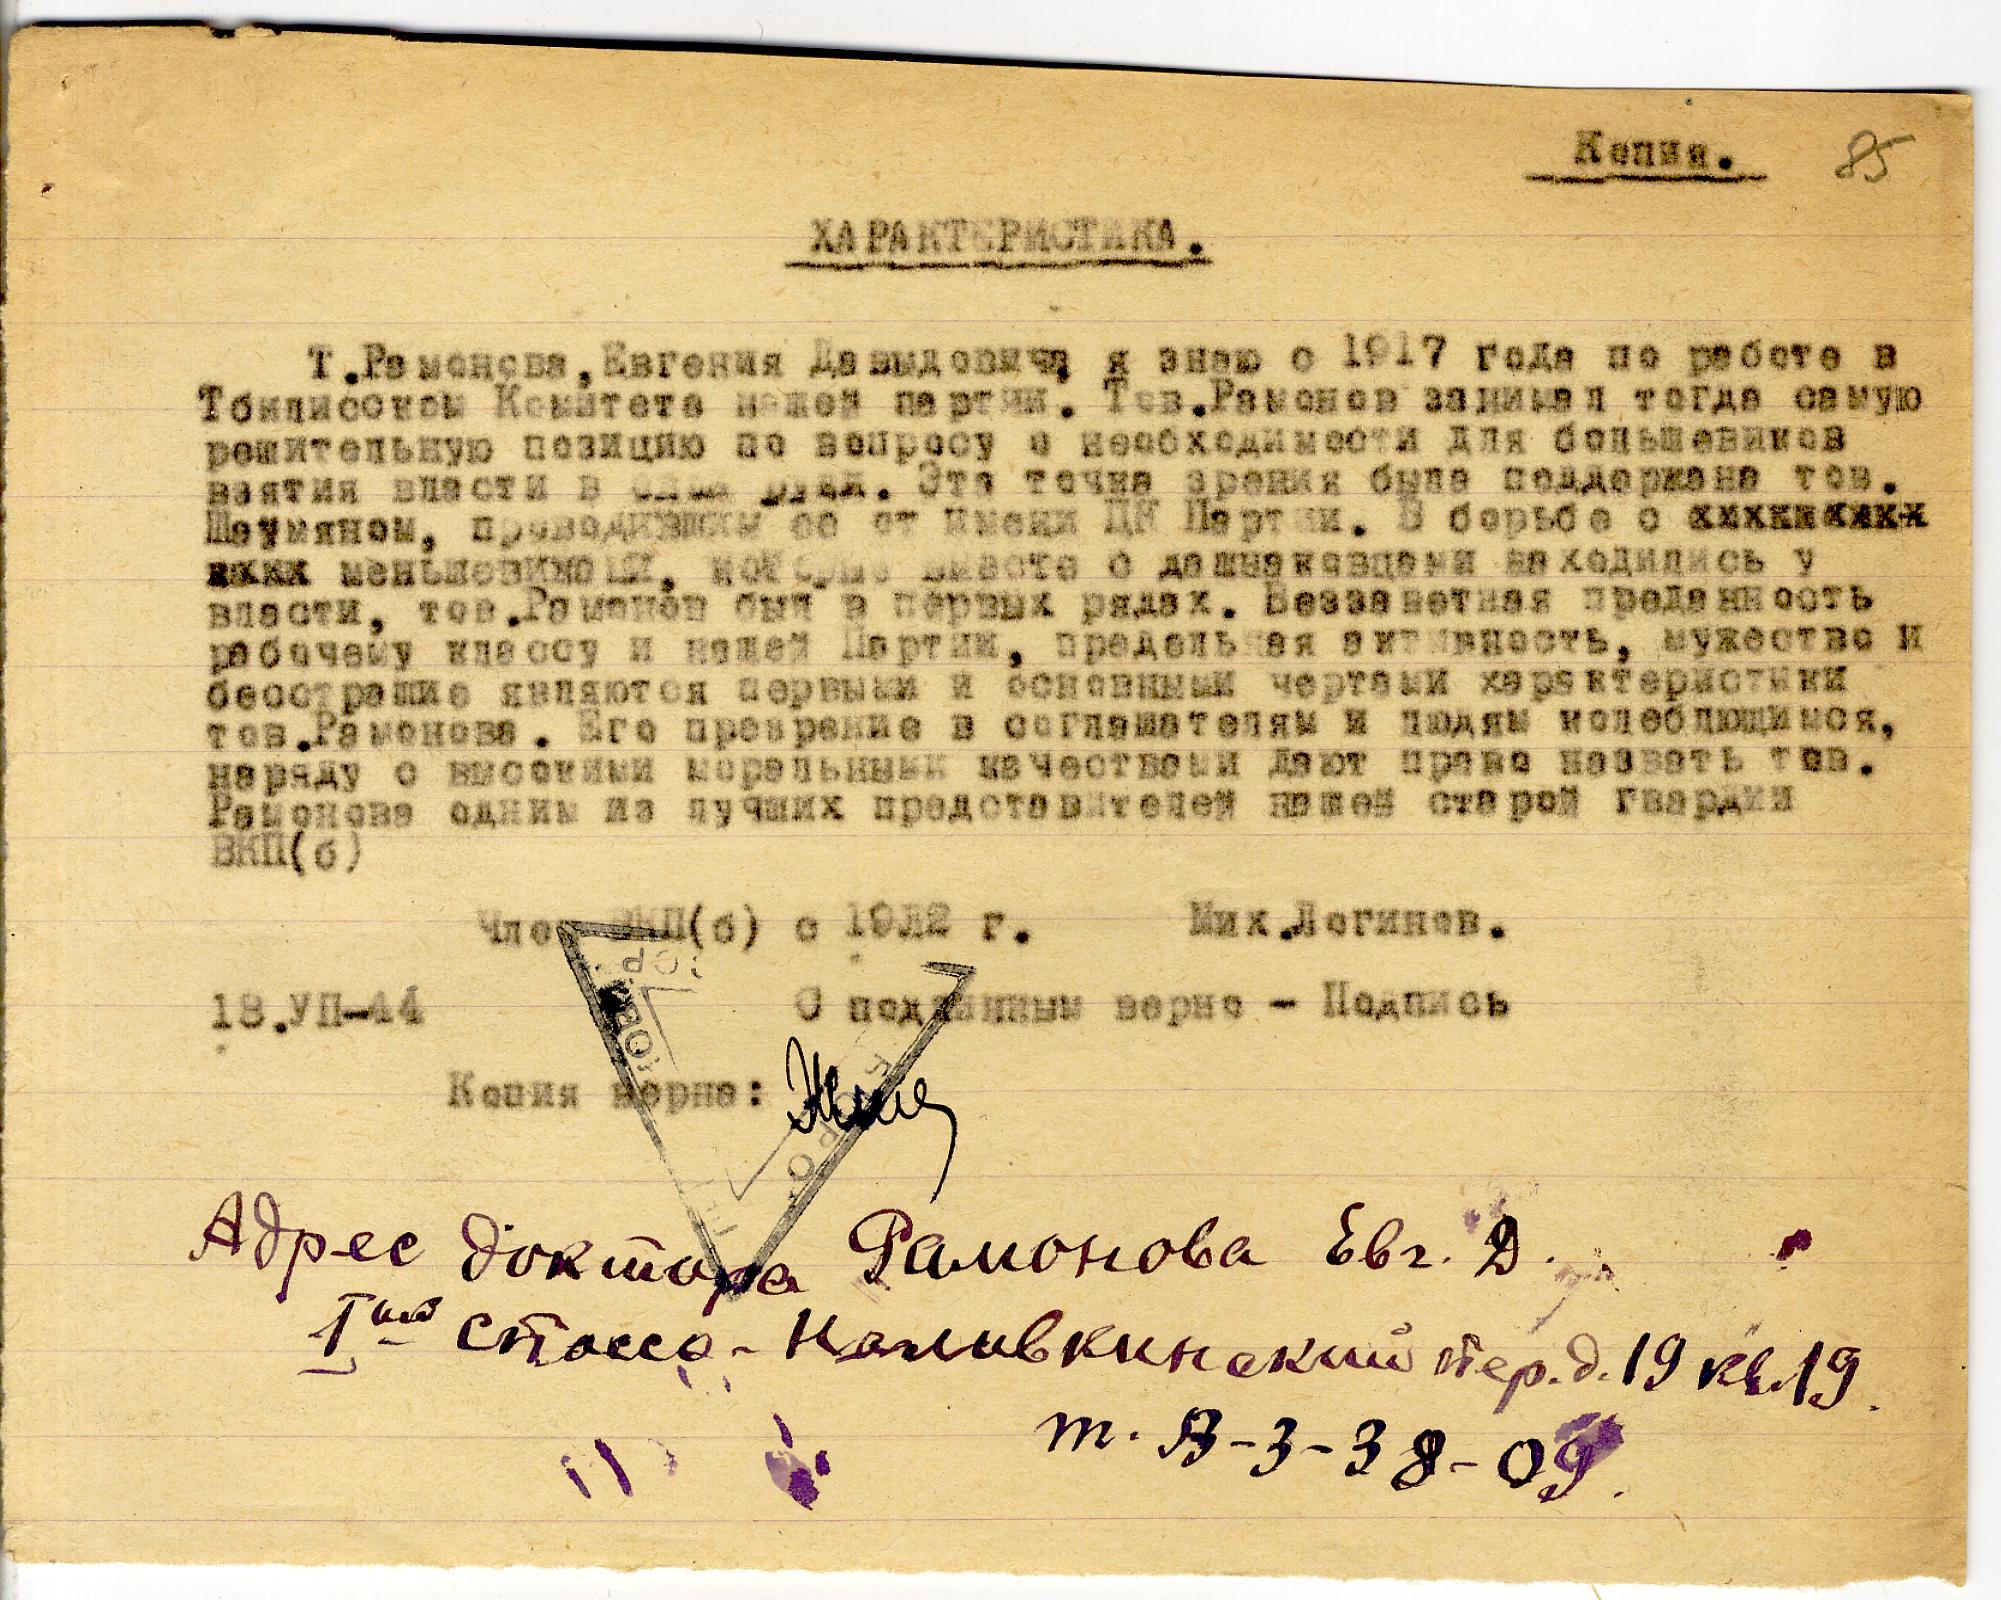 Копия. 85
ХАРАКТЕРИСТИКА.
Т.Рамонова,Евгения Давыдовича я знаю с 1917 года по работе в
Тбилисском Комитете нашей партии. Тов.Рамонов занимал тогда самую
решительную позицию по вопросу о необходимости для большевиков
взятия власти в свои руки. Эта точка зрения была поддержана тов.
Шаумяном, проводившим ее от имени ЦК Партии. В борьбе с
меньшевиками, которые вместе с дашнаковцами находились у
власти, тов.Рамонов был в первых рядах. Беззаветная преданность
рабочему классу и нашей Партии, предельная активность, мужество и
бесстрашие являются первыми и основными чертами характеристики
тов.Рамонова. Его презрение к соглашателям и людям колеблющимся,
наряду с высокими моральными качествами дают право назвать тов.
Рамонова одним из лучших представителей нашей старой гвардии
ВКП(б)
Член ВКП(б) с 1912 г. Мих.Логинов.
18.УП-44 С подлинным верно - Подпись
Копия верна:
Адрес доктора Рамонова Евг. Д.
1ый Спасо-Наливкинский пер. д. 19 кв. 19.
т. В-3-38-09.